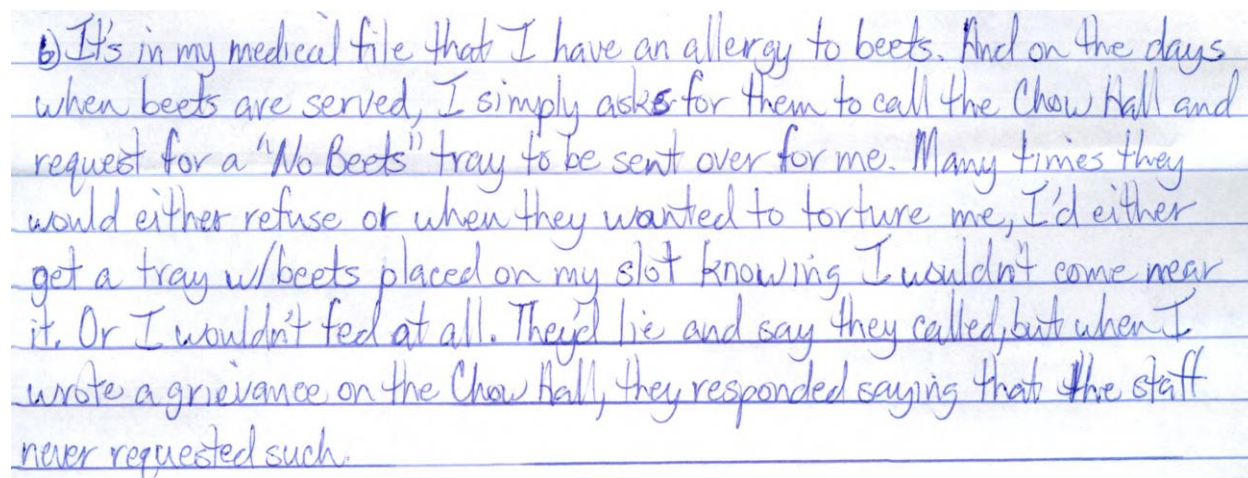 6) It's in my medical file that I have an allergy to beets. And on the days
when beets are served, I simply asks for them to call the Chow Hall and
request for a "No Beets" tray to be sent over for me. Many times they
would either refuse or when they wanted to torture me, I'd either
get a tray w/beets placed on my slot knowing I wouldn't come near
it. Or I wouldn't fed at all. They'd lie and say they called, but when I
wrote a grievance on the Chow Hall, they responded saying that the staff
never requested such.